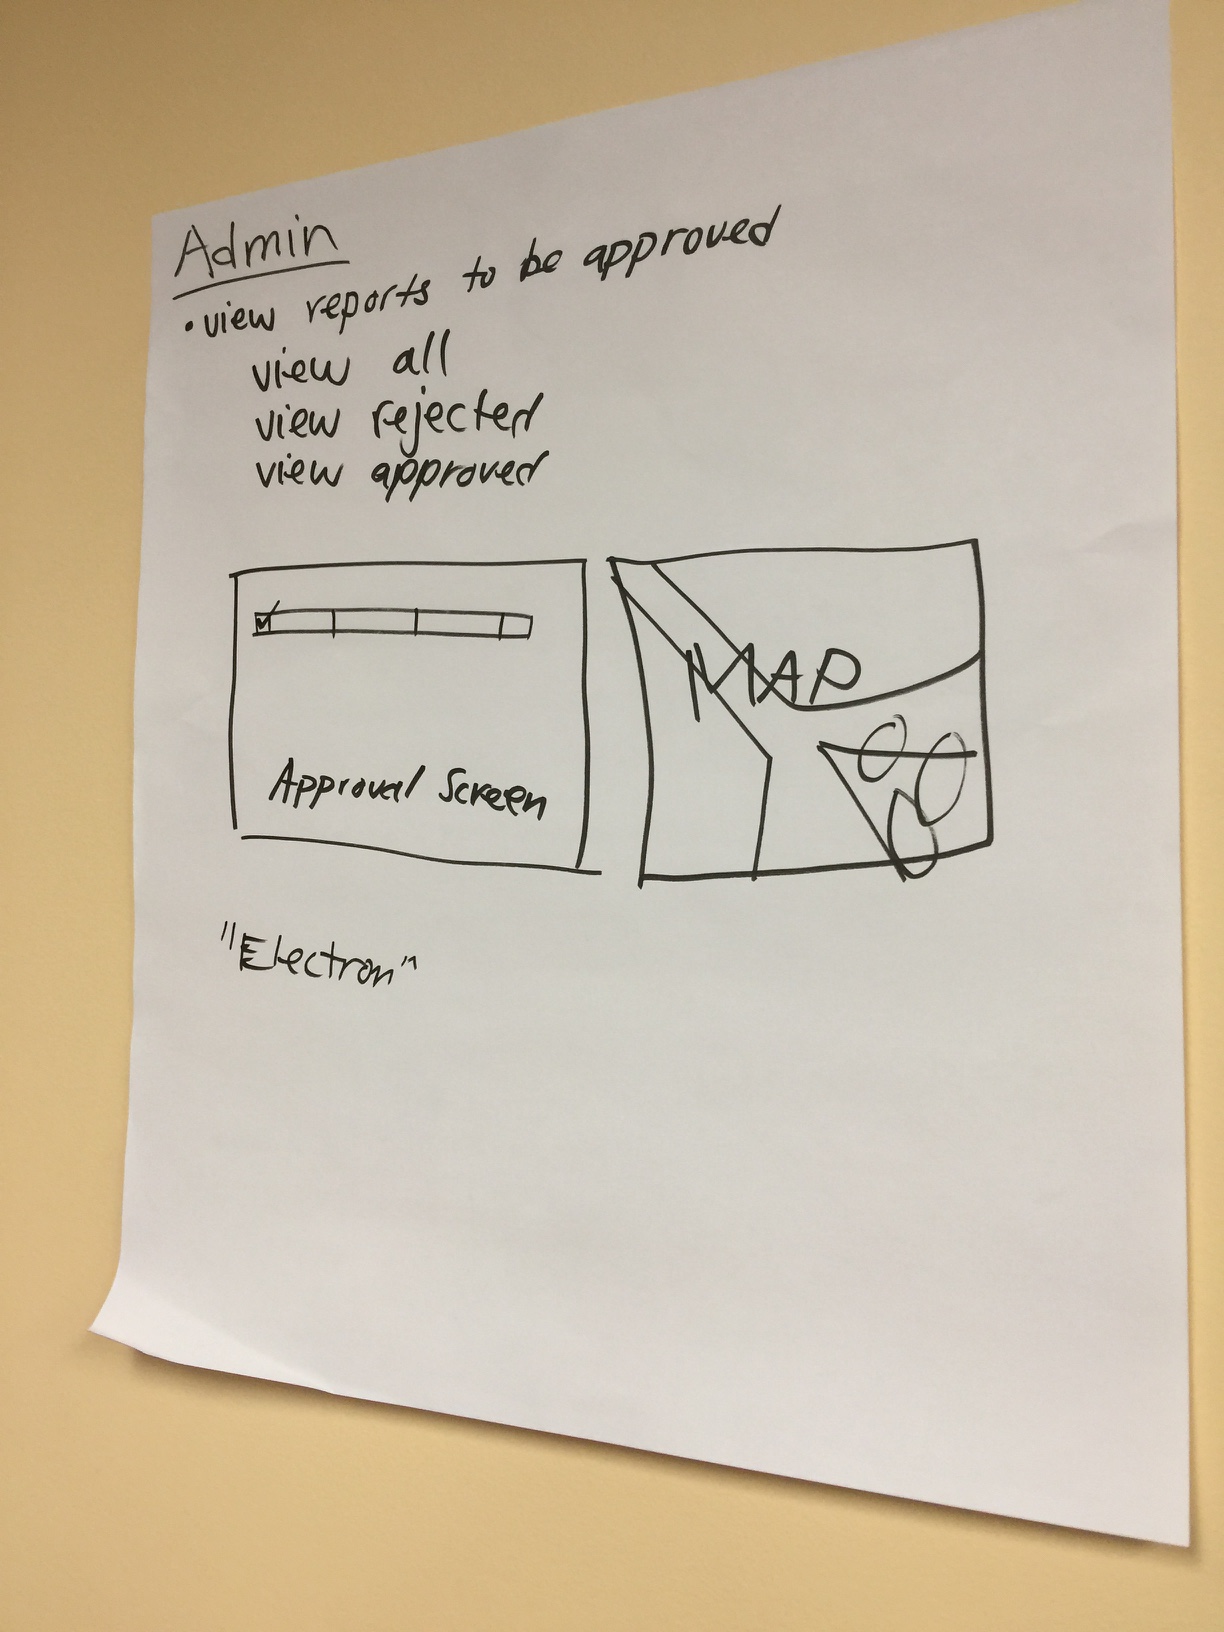 Admin
• view reports to be approved
view all
view rejected
view approved
Approval Screen
MAP
"Electron"